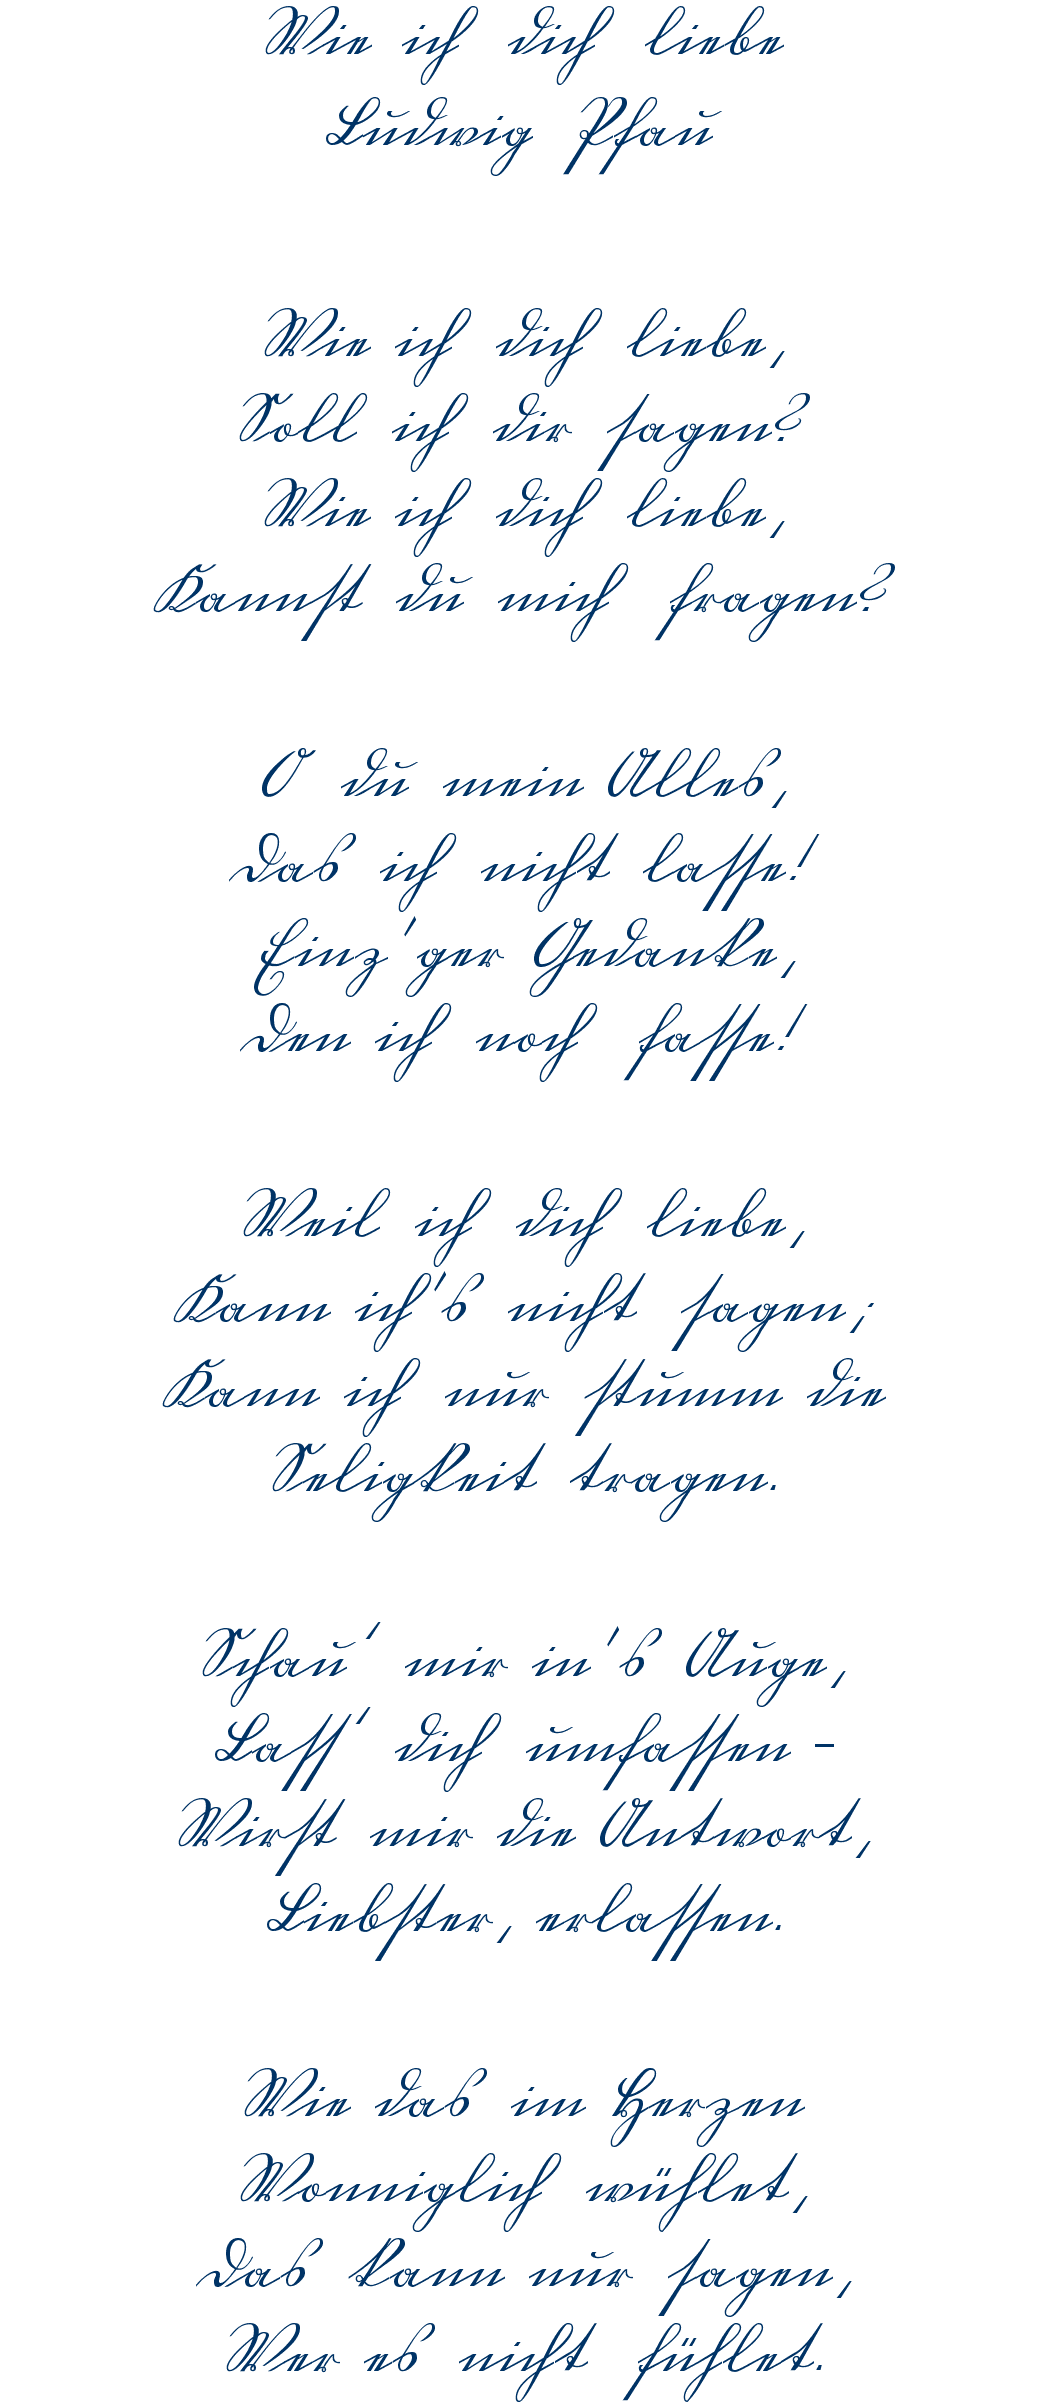 Wie ich dich liebe
Ludwig Pfau
Wie ich dich liebe,
Soll ich dir sagen?
Wie ich dich liebe,
Kannst du mich fragen?
O du mein Alles,
Das ich nicht lasse!
Einz'ger Gedanke,
Den ich noch fasse!
Weil ich dich liebe,
Kann ich's nicht sagen;
Kann ich nur stumm die
Seligkeit tragen.
Schau' mir in's Auge,
Lass' dich umfassen –
Wirst mir die Antwort,
Liebster, erlassen.
Wie das im Herzen
Wonniglich wühlet,
Das kann nur sagen,
Wer es nicht fühlet.